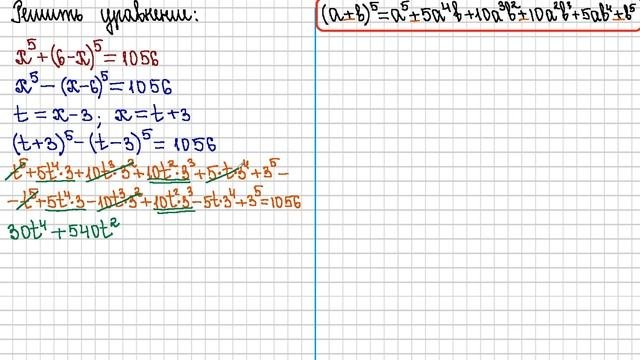 Решить уравнение:
x⁵+(6-x)⁵=1056
x⁵-(x-6)⁵=1056
t=x-3; x=t+3
(t+3)⁵-(t-3)⁵=1056
t⁵+5t⁴·3+10t³·3²+10t²·3³+5·t·3⁴+3⁵-
-t⁵+5t⁴·3-10t³·3²+10t²·3³-5t·3⁴+3⁵=1056
30t⁴+540t²
(a±b)⁵=a⁵±5a⁴b+10a³b²±10a²b³+5ab⁴±b⁵